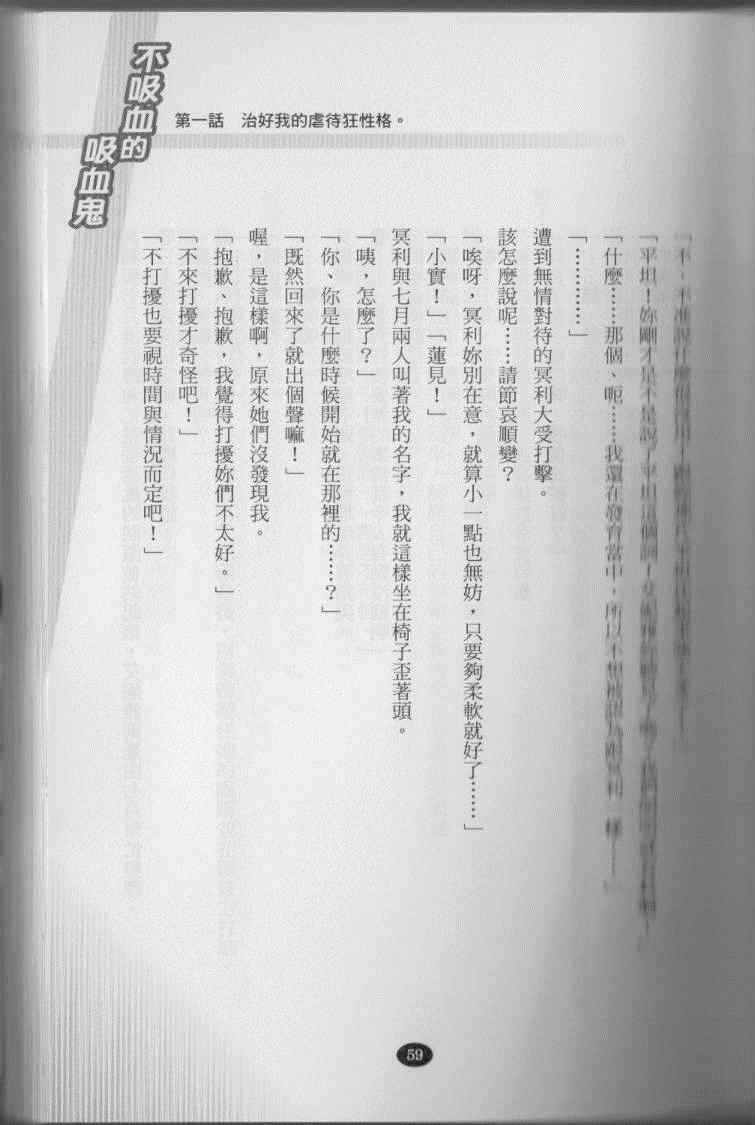 不吸血的
吸血鬼
第一話　治好我的虐待狂性格。
「平坦！妳剛才是不是說了平坦這個詞！
「什麼……那個、呃……我還在發育當中，所以不想
「…………」
遭到無情對待的冥利大受打擊。
該怎麼說呢……請節哀順變？
「唉呀，冥利妳別在意，就算小一點也無妨，只要夠柔軟就好了……」
「小實！」「蓮見！」
冥利與七月兩人叫著我的名字，我就這樣坐在椅子歪著頭。
「咦，怎麼了？」
「你、你是什麼時候開始就在那裡的……？」
「既然回來了就出個聲嘛！」
喔，是這樣啊，原來她們沒發現我。
「抱歉、抱歉，我覺得打擾妳們不太好。」
「不來打擾才奇怪吧！」
「不打擾也要視時間與情況而定吧！」
59